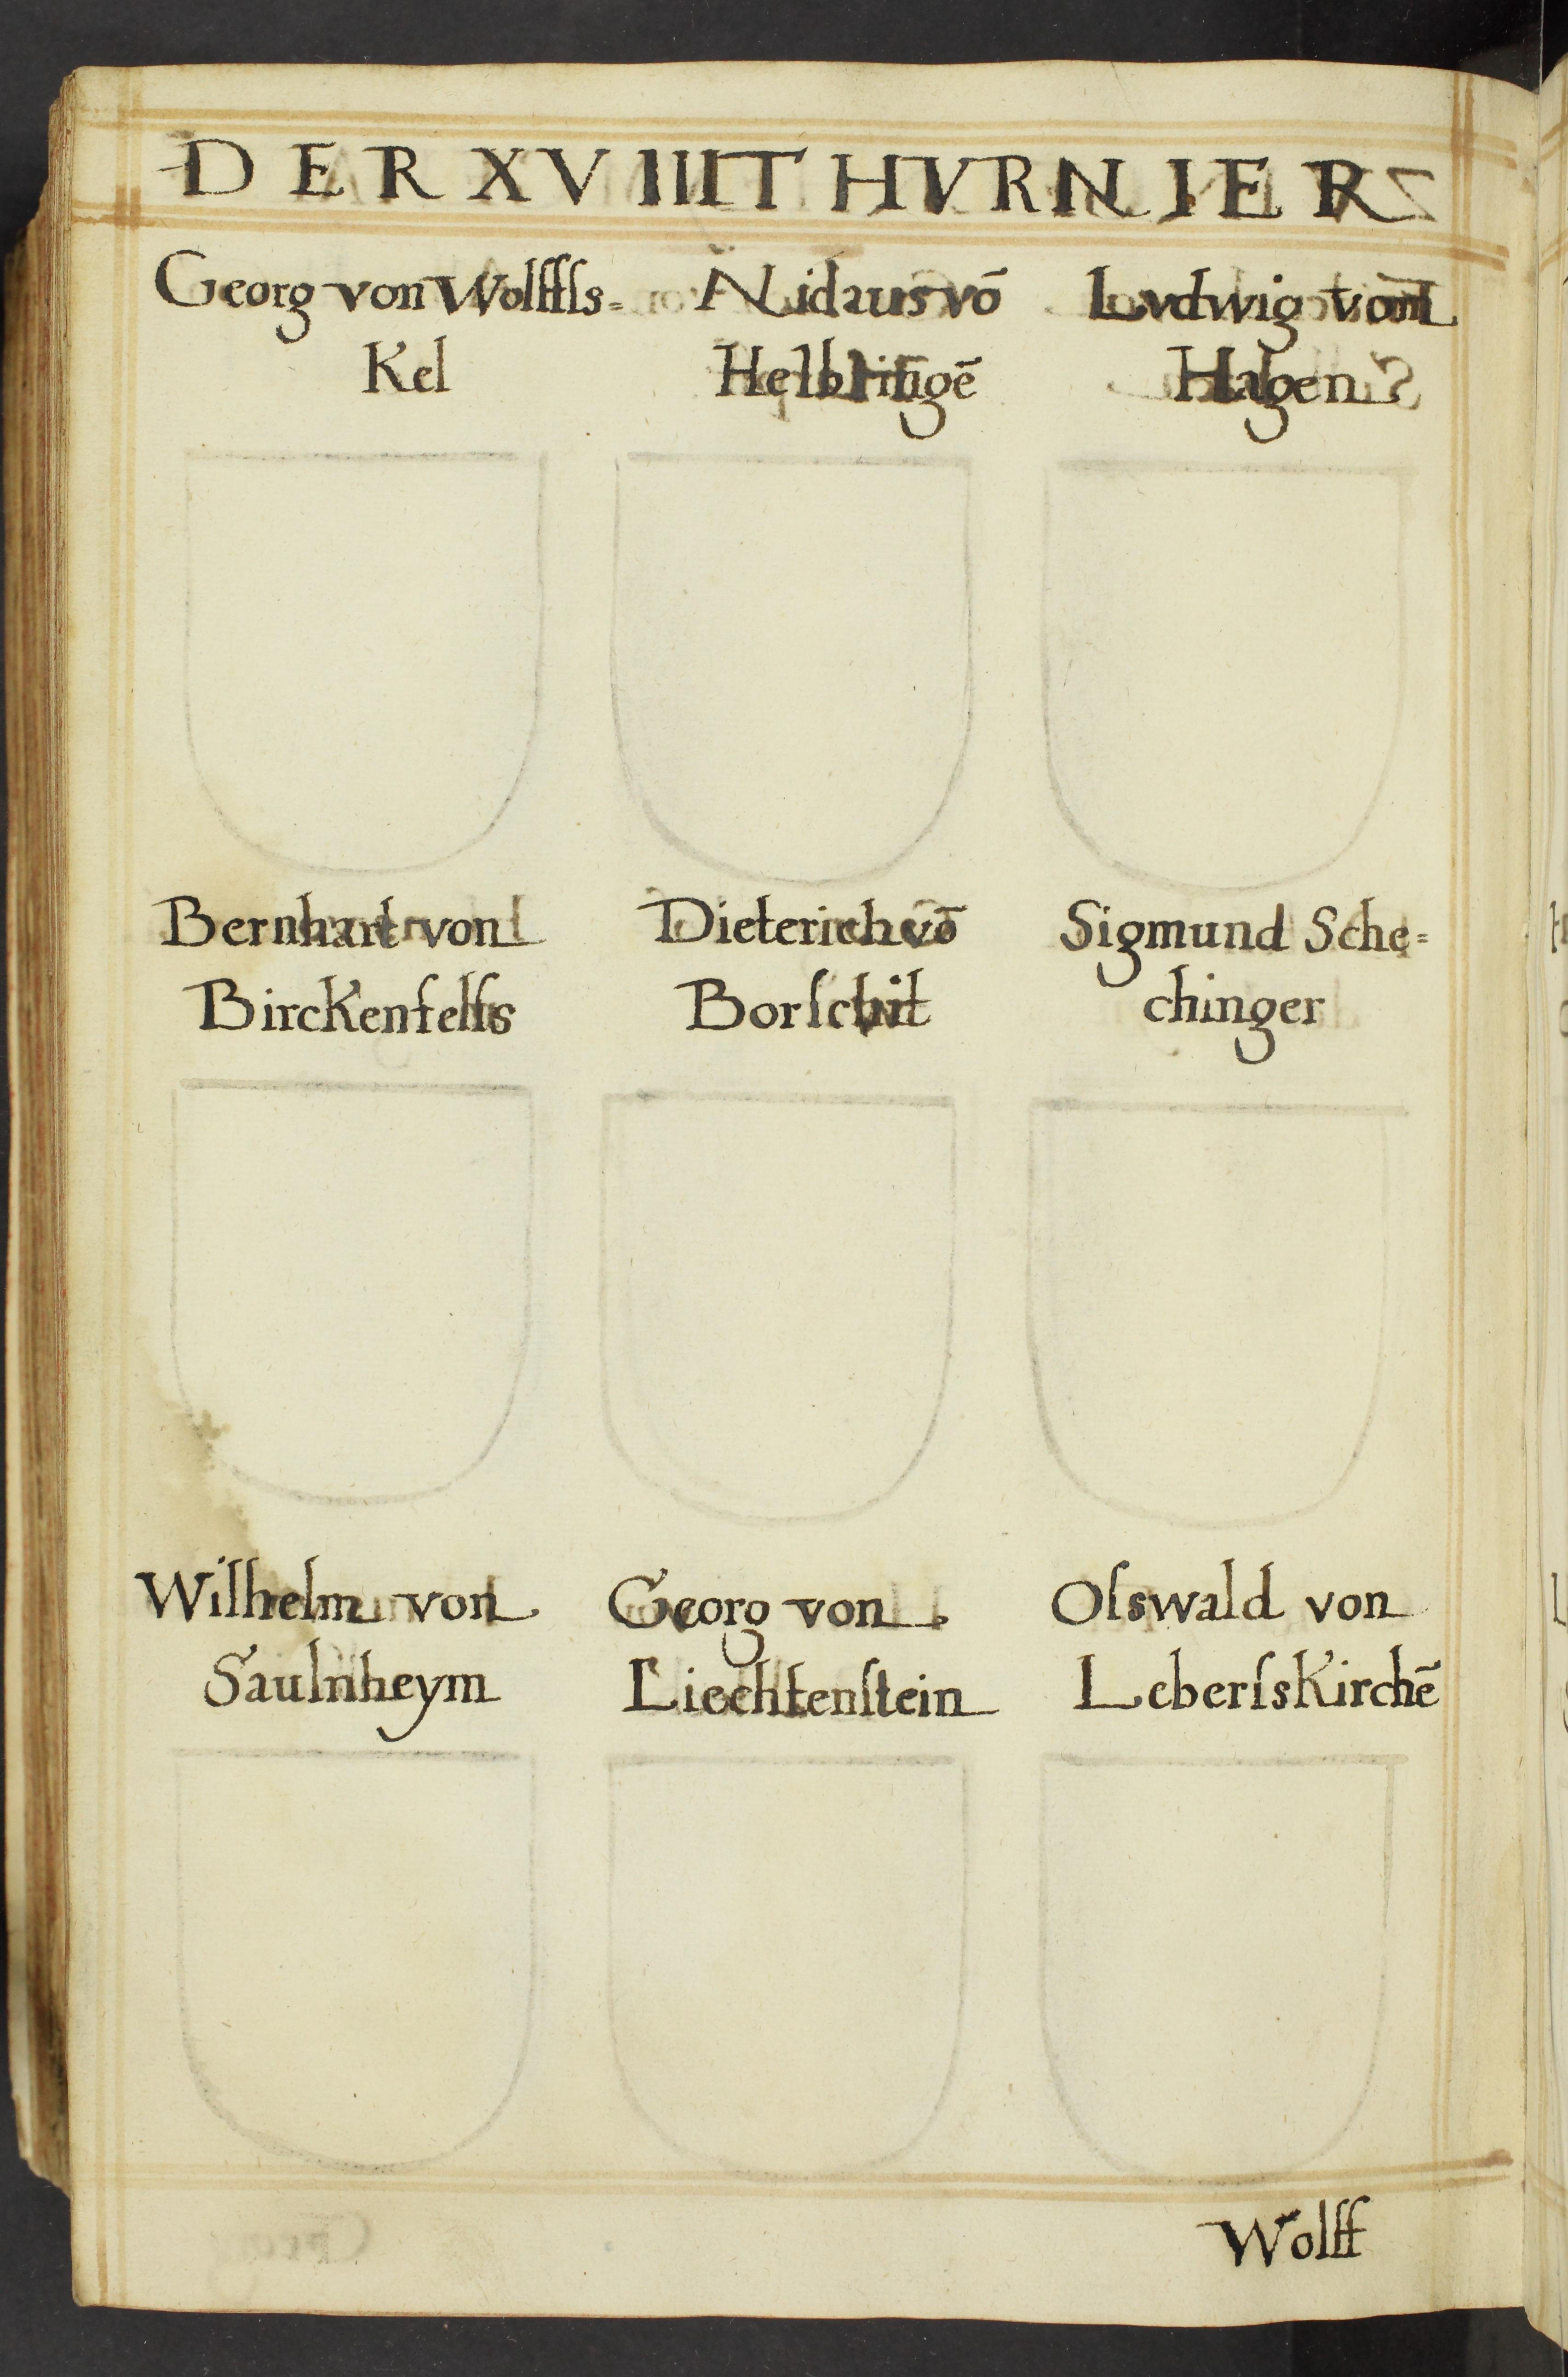 DER XVIIII THVRNIER
Georg von Wolffs=
Kel
Nidaus vō
Helbringē
Lvdwig von
Hagen
Bernhart von
Birckenfelſs
Dieterich vō
Borſchit
Sigmund Sche=
chinger
Wilhelm von
Saulnheym
Georg von
Liechtenſtein
Oſswald von
LeberſsKirchē
Wolff